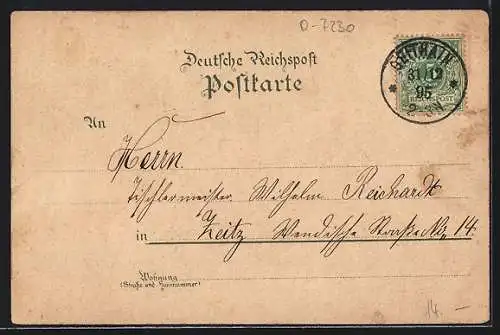 0-7230
Deutsche Reichspost
Postkarte
GEITHAIN
31/12
95
2-3N
REICHSPOST
An
Herrn
Tischlermeister Wilhelm Reichardt
in Zeitz Wendische Straße No 14.
Wohnung
(Straße und Hausnummer)
14.-